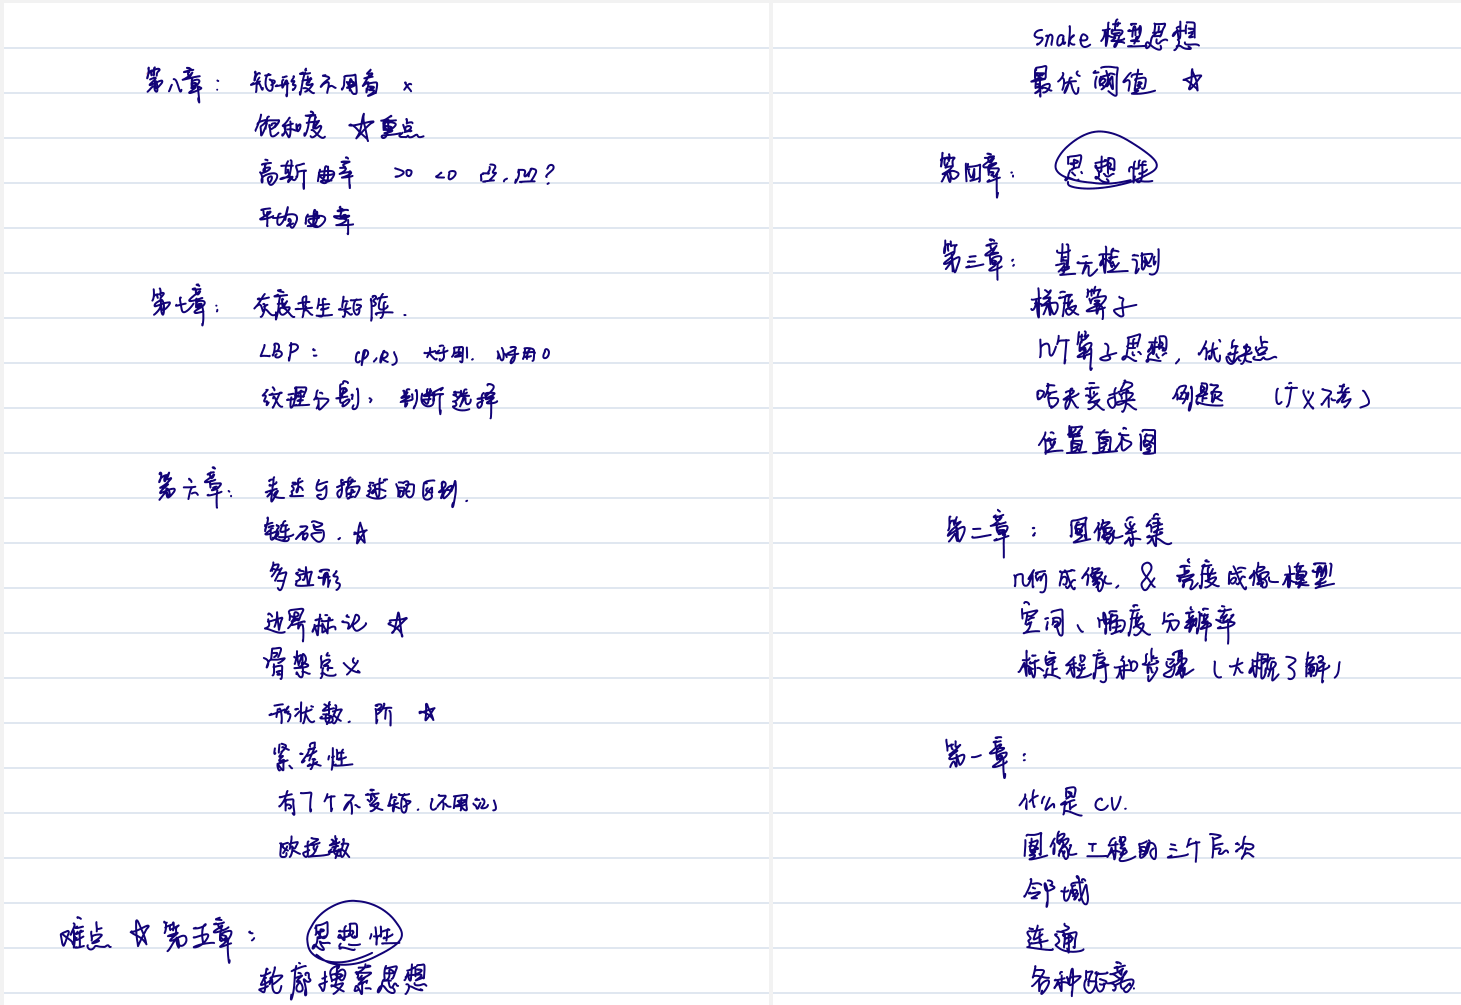 第八章： 矩形度不用看 ×
饱和度 ☆重点
高斯曲率 >0 <0 凸.凹?
平均曲率
第七章： 灰度共生矩阵.
LBP： (P,R) 大于用1. 小于用0
纹理分割， 判断选择
第六章： 表达与描述的区别.
链码. ☆
多边形
边界标记 ☆
骨架定义
形状数. 阶 ☆
紧凑性
有7个不变矩.(不用记)
欧拉数
难点 ☆ 第五章： 思想性
轮廓搜索思想
Snake 模型思想
最优阈值 ☆
第四章： 思想性
第三章： 基元检测
梯度算子
几个算子思想, 优缺点
哈夫变换 例题 (广义不考)
位置直方图
第二章： 图像采集
几何成像. & 亮度成像模型
空间、幅度分辨率
标定程序和步骤 (大概了解)
第一章：
什么是 CV.
图像工程的三个层次
邻域
连通
各种距离